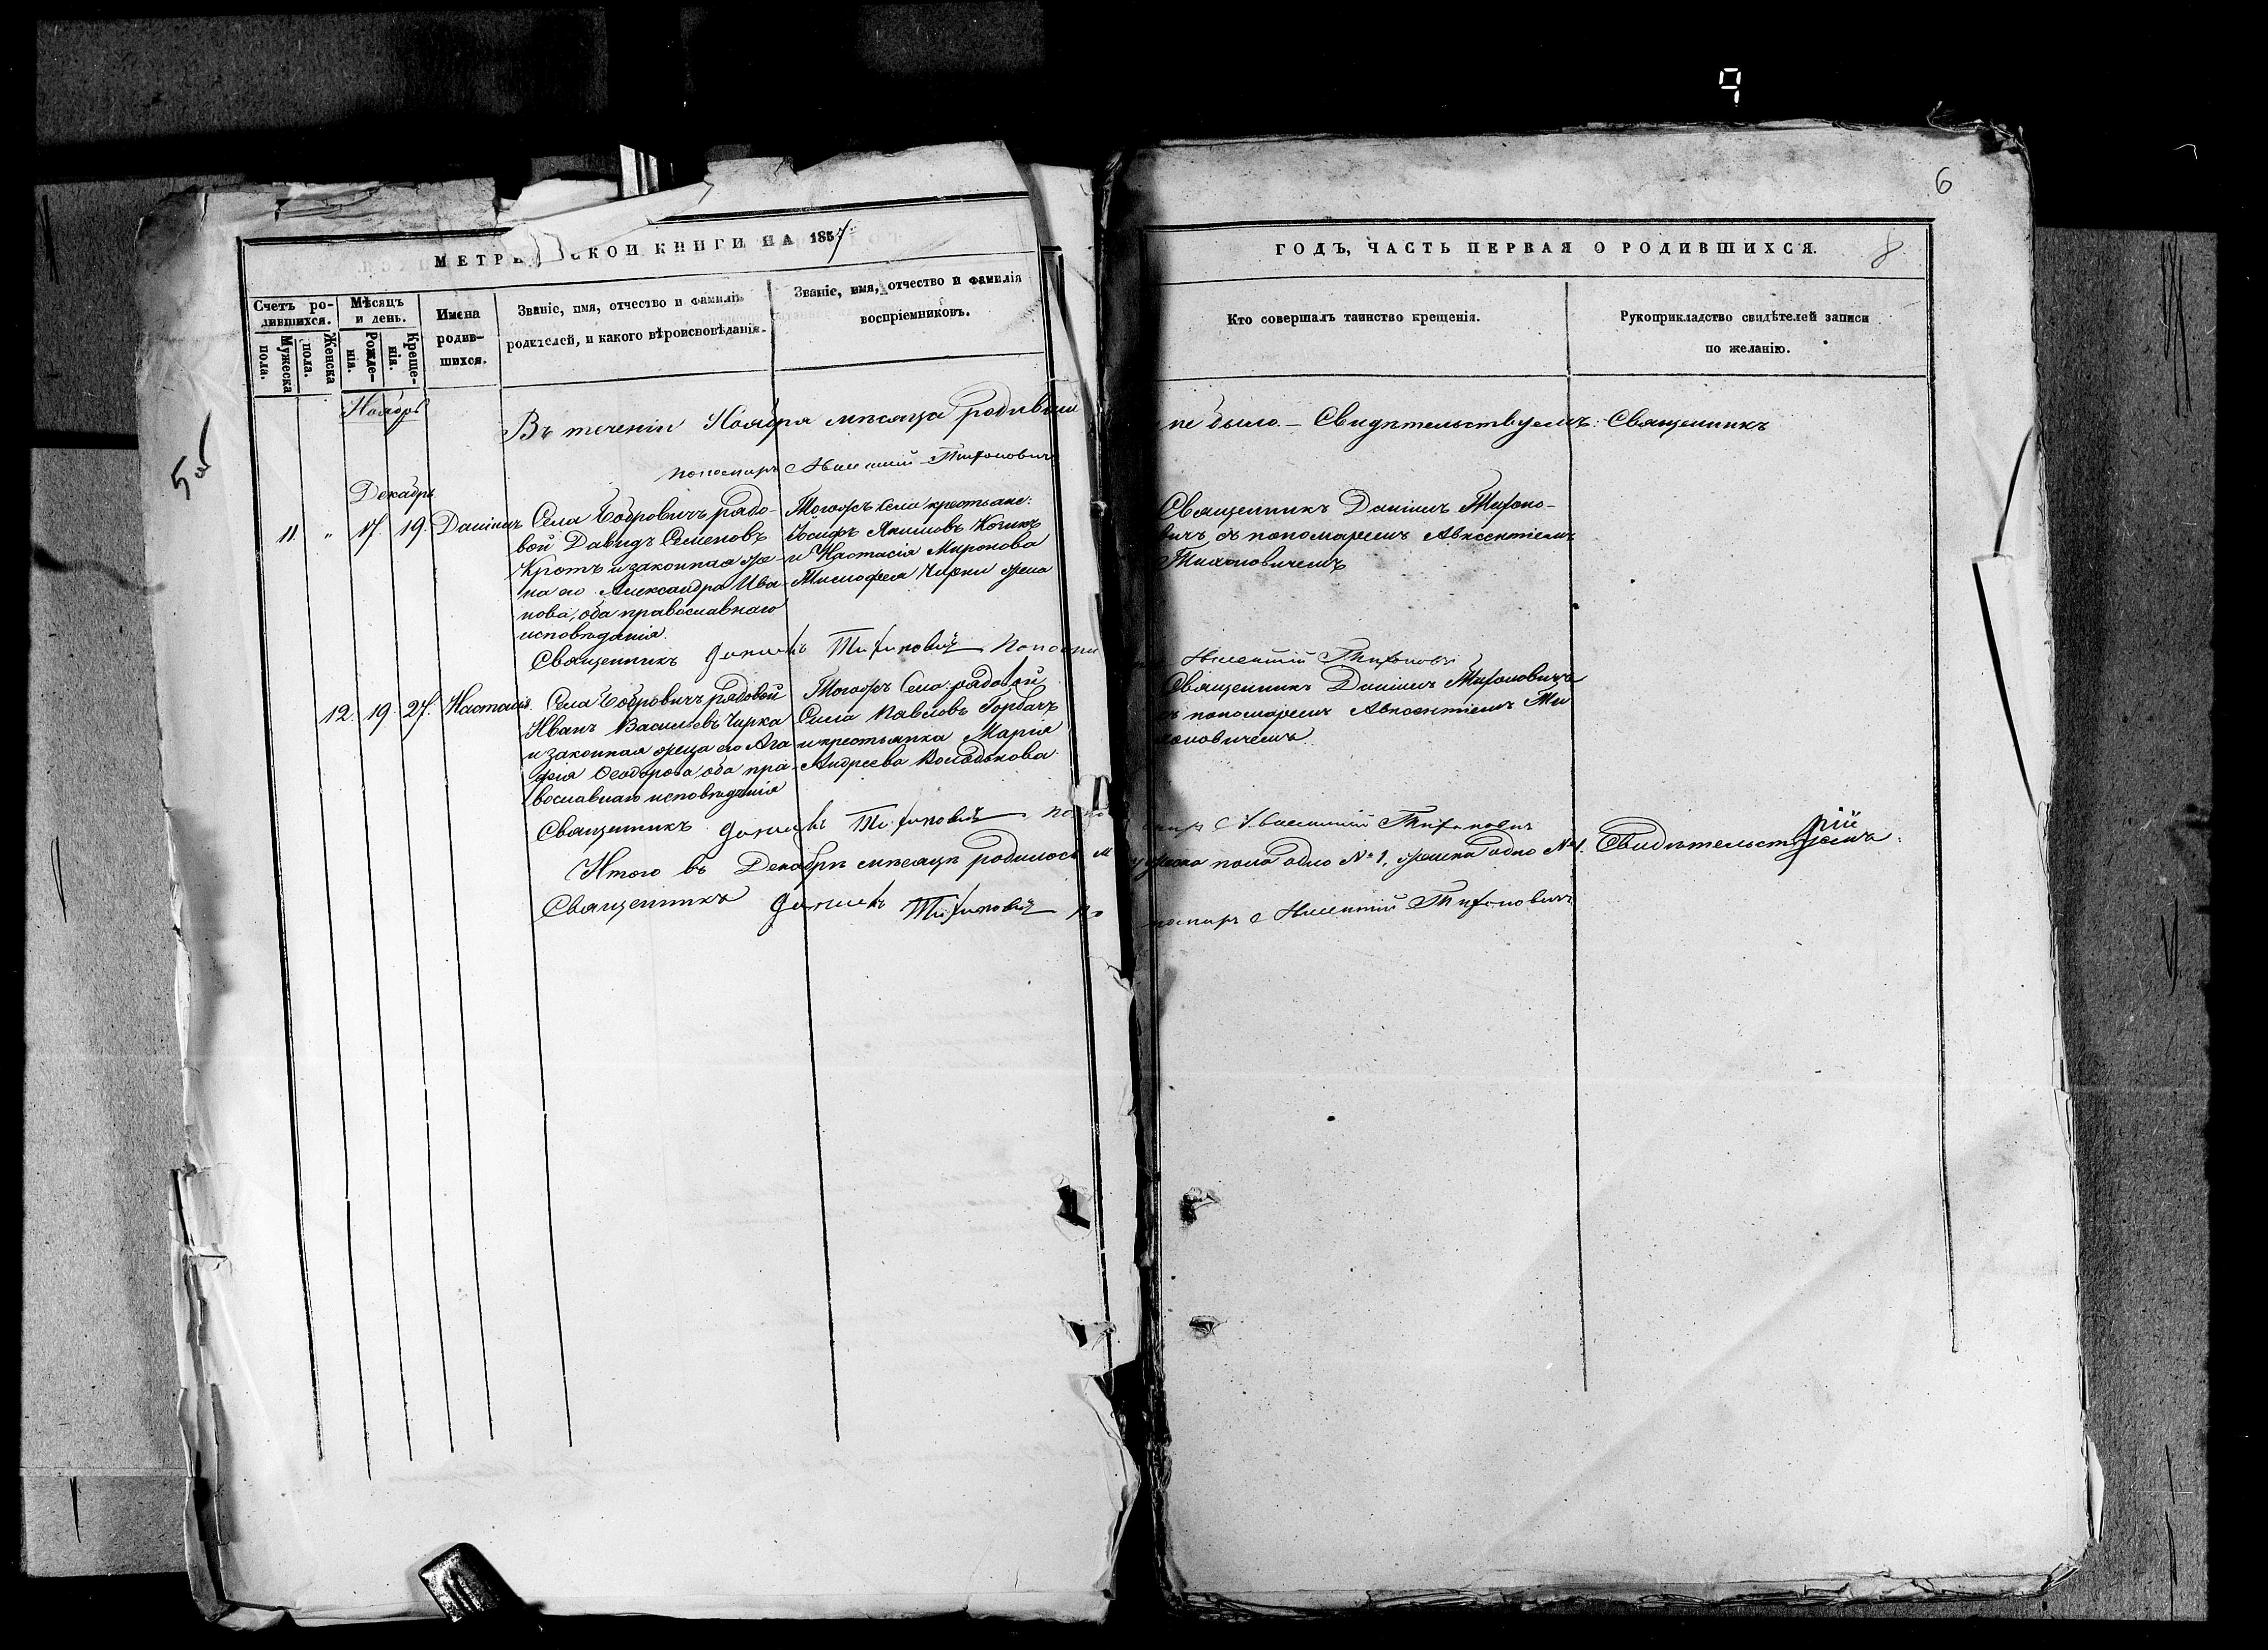 6
МЕТРИ СКОЙ КНИГИ НА 1857
ГОДЪ, ЧАСТЬ ПЕРВАЯ О РОДИВШИХСЯ.
8
Счетъ ро-
дившихся.
Мужеска пола.
Женска пола.
Мѣсяцъ
и день.
Рожде-
нія.
Креще-
нія.
Имена
родив-
шихся.
Званіе, имя, отчество и фамилія
родителей, и какого вѣроисповѣданія.
Званіе, имя, отчество и фамилія
воспріемниковъ.
Кто совершалъ таинство крещенія.
Рукоприкладство свидѣтелей записи
по желанію.
5об
Ноябрь
Въ теченіи Ноября мѣсяца родивши
не было. – Свидѣтельствуемъ: Священникъ
пономарь Тихоновичъ
Декабрь
11. " 17. 19. Даніилъ
Села Бобровичъ рядо-
вой Давидъ Семеновъ
Кротъ и законная же-
на его Александра Ива-
нова, оба православнаго
исповѣданія.
Тогожъ села крестьяне:
Іосифъ Якимовъ Кочикъ
и Настасія Миронова
Тимофея Чирки жена
Священникъ Даніилъ Тихоно-
вичъ съ пономаремъ Авксентіемъ
Тихоновичемъ
Священникъ Даніилъ Тихоновичъ Пономарь
Тихоновичъ
12. 19. 27. Настасія.
Села Бобровичъ рядовой
Иванъ Васильевъ Чирка
и законная жена его Ага
фія Ѳеодорова, оба пра-
вославнаго исповѣданія
Тогожъ Села: рядовой
Сила Павловъ Горбачъ
и крестьянка Марія
Андреева Володькова
Священникъ Даніилъ Тихоновичъ
съ пономаремъ Авксентіемъ Ти
хоновичемъ.
Священникъ Даніилъ Тихоновичъ пономарь Тихоновичъ
Итого въ Декабрѣ мѣсяцѣ родилось м
ужеска пола одно № 1, женска одно № 1. Свидѣтельствуемъ:
Священникъ Даніилъ Тихоновичъ по
номарь Тихоновичъ